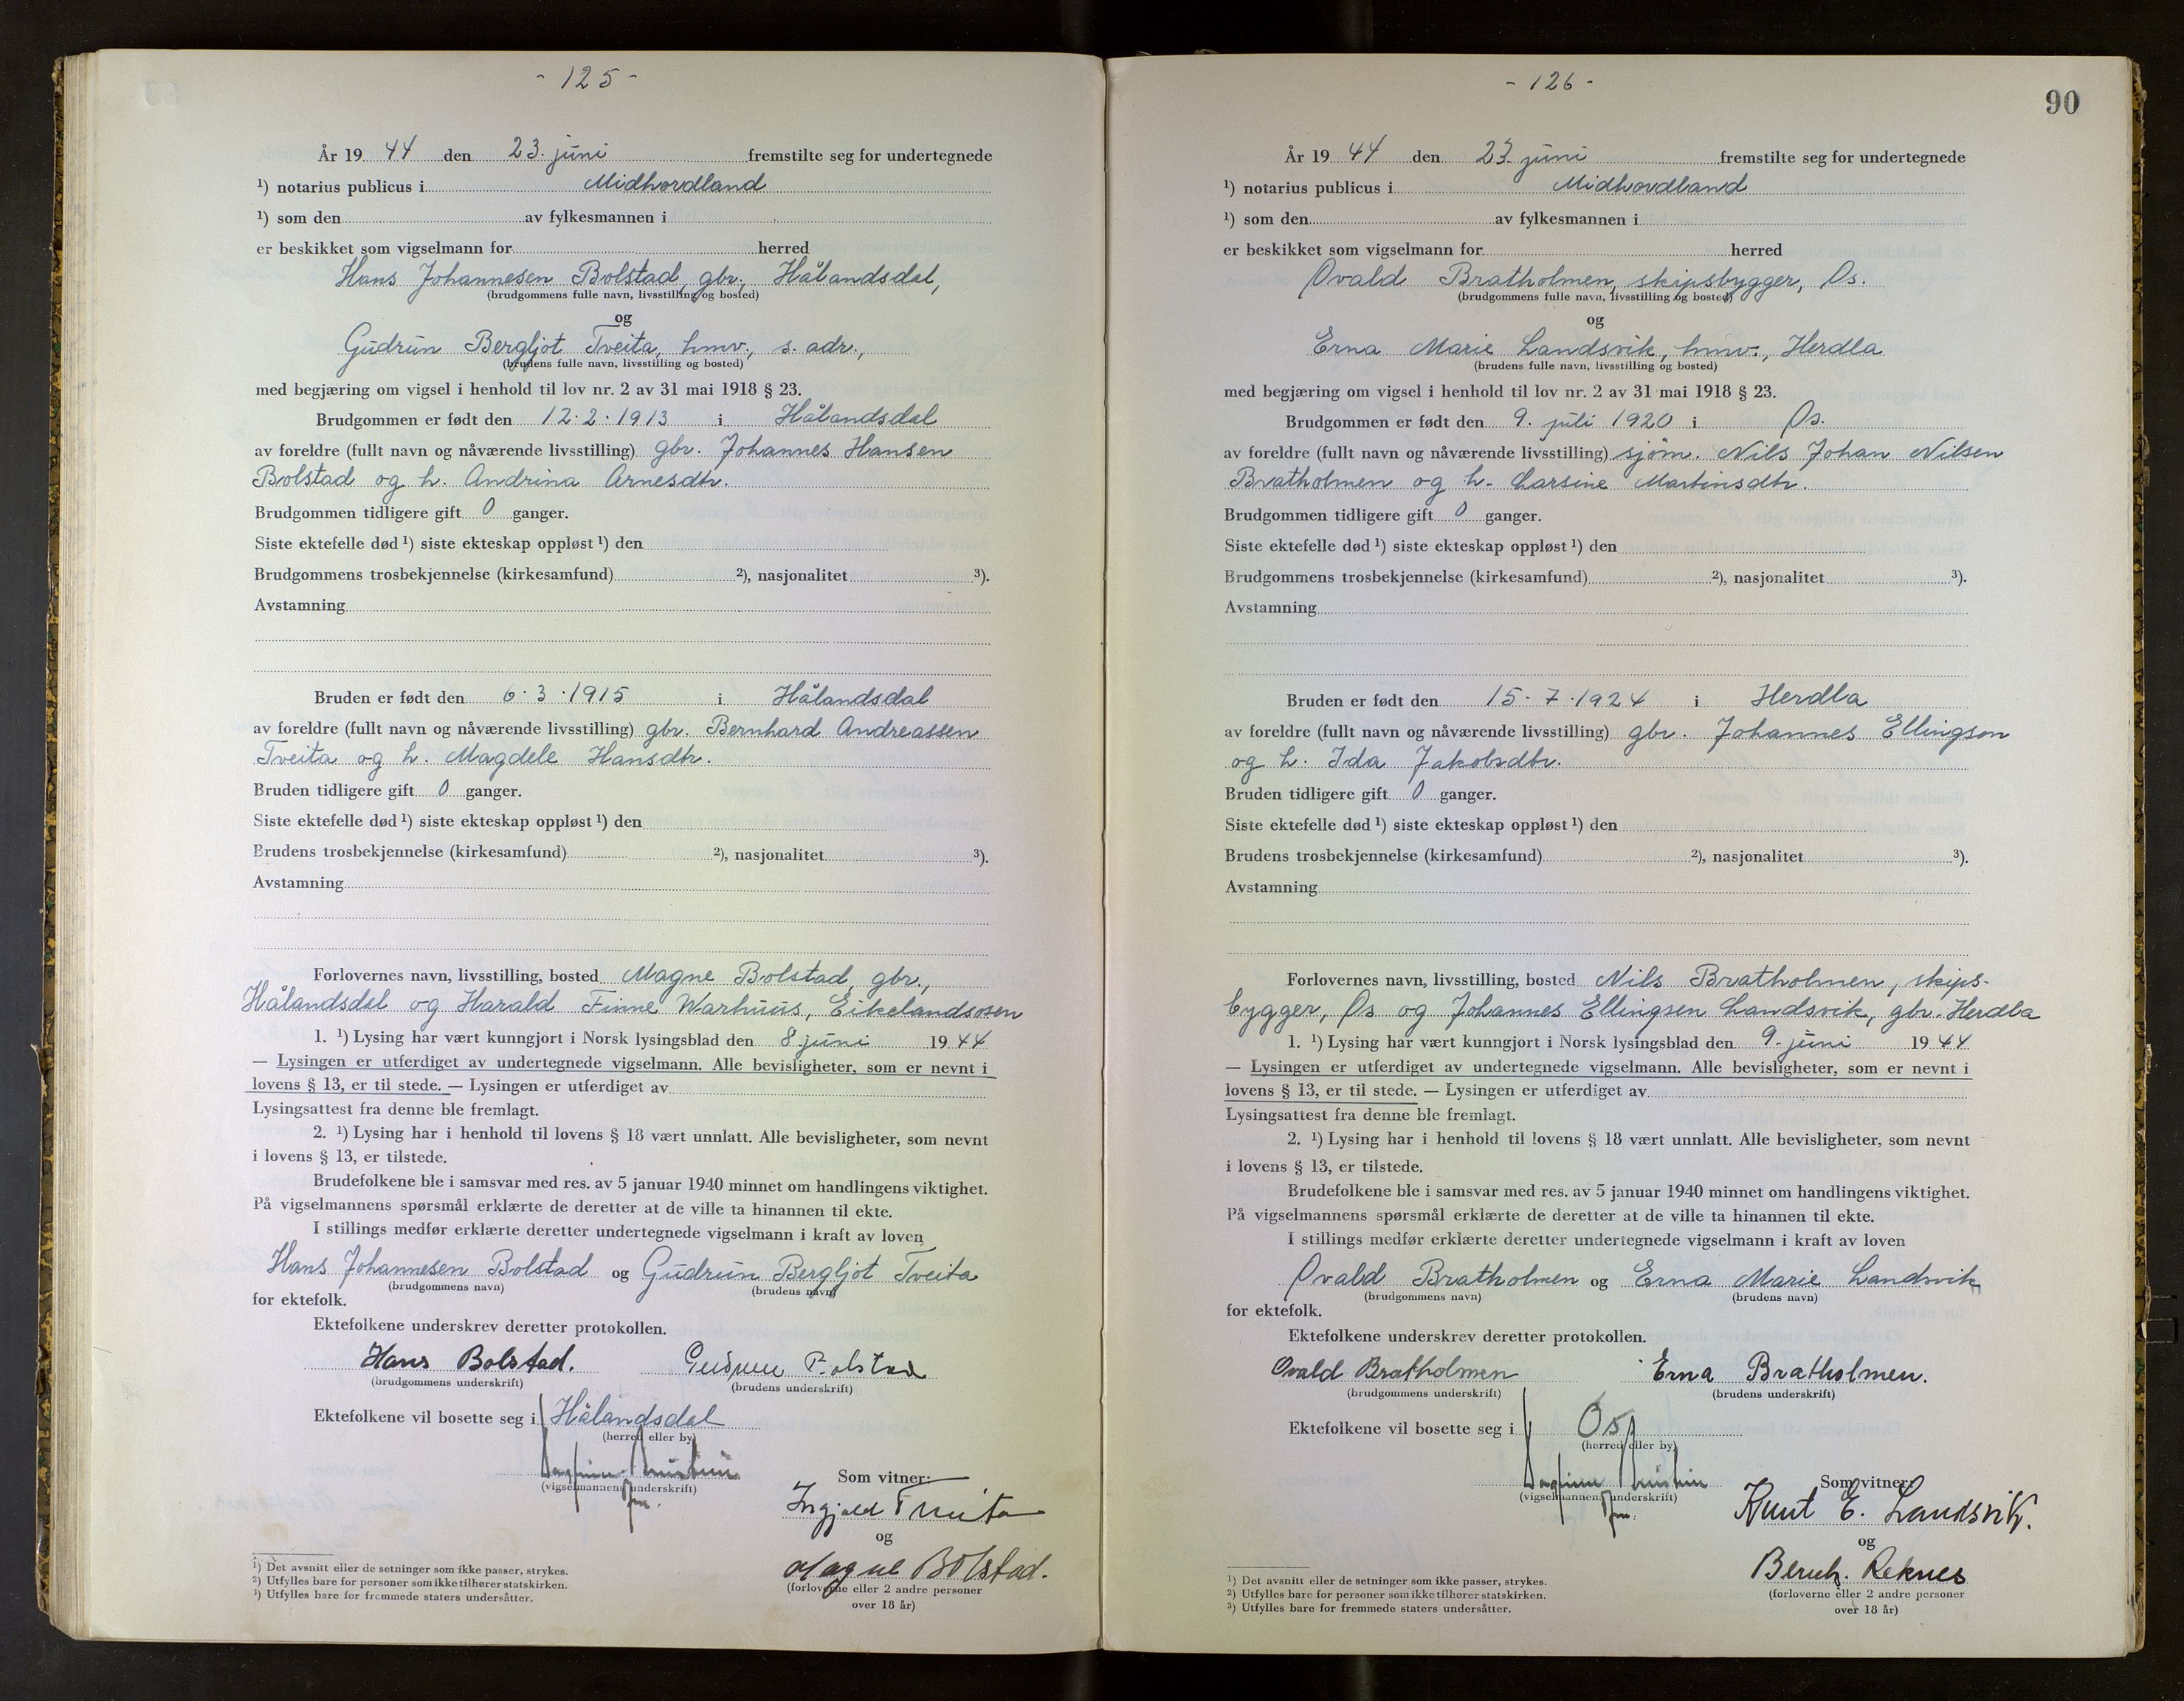 - 125 -
År 19 44 den 23. juni fremstilte seg for undertegnede
¹) notarius publicus i Midhordland
¹) som den av fylkesmannen i
er beskikket som vigselmann for herred
Hans Johannesen Bolstad, gbr., Hålandsdal,
(brudgommens fulle navn, livsstilling og bosted)
og
Gudrun Bergljot Tveita, hmv., s. adr.,
(brudens fulle navn, livsstilling og bosted)
med begjæring om vigsel i henhold til lov nr. 2 av 31 mai 1918 § 23.
Brudgommen er født den 12.2.1913 i Hålandsdal
av foreldre (fullt navn og nåværende livsstilling) gbr. Johannes Hansen
Bolstad og h. Andrina Arnesdtr.
Brudgommen tidligere gift 0 ganger.
Siste ektefelle død ¹) siste ekteskap oppløst ¹) den
Brudgommens trosbekjennelse (kirkesamfund) ²), nasjonalitet ³).
Avstamning
Bruden er født den 6.3.1915 i Hålandsdal
av foreldre (fullt navn og nåværende livsstilling) gbr. Bernhard Andreassen
Tveita og h. Magdele Hansdtr.
Bruden tidligere gift 0 ganger.
Siste ektefelle død ¹) siste ekteskap oppløst ¹) den
Brudens trosbekjennelse (kirkesamfund) ²), nasjonalitet ³).
Avstamning
Forlovernes navn, livsstilling, bosted Magne Bolstad, gbr.,
Hålandsdal og Harald Finne Warhuus, Eikelandsosen
1. ¹) Lysing har vært kunngjort i Norsk lysingsblad den 8. juni 19 44
— Lysingen er utferdiget av undertegnede vigselmann. Alle bevisligheter, som er nevnt i
lovens § 13, er til stede. — Lysingen er utferdiget av
Lysingsattest fra denne ble fremlagt.
2. ¹) Lysing har i henhold til lovens § 18 vært unnlatt. Alle bevisligheter, som nevnt
i lovens § 13, er tilstede.
Brudefolkene ble i samsvar med res. av 5 januar 1940 minnet om handlingens viktighet.
På vigselmannens spørsmål erklærte de deretter at de ville ta hinannen til ekte.
I stillings medfør erklærte deretter undertegnede vigselmann i kraft av loven
Hans Johannesen Bolstad og Gudrun Bergljot Tveita
(brudgommens navn) (brudens navn)
for ektefolk.
Ektefolkene underskrev deretter protokollen.
Hans Bolstad. Gudrun Bolstad
(brudgommens underskrift) (brudens underskrift)
Ektefolkene vil bosette seg i Hålandsdal
(herred eller by)
(vigselmannens underskrift)
Som vitner:
Ingjald Tveita
og
Magne Bolstad.
(forloverne eller 2 andre personer
over 18 år)
¹) Det avsnitt eller de setninger som ikke passer, strykes.
²) Utfylles bare for personer som ikke tilhører statskirken.
³) Utfylles bare for fremmede staters undersåtter.
- 126 -
90
År 19 44 den 23. juni fremstilte seg for undertegnede
¹) notarius publicus i Midhordland
¹) som den av fylkesmannen i
er beskikket som vigselmann for herred
Ovald Bratholmen, skipsbygger, Os.
(brudgommens fulle navn, livsstilling og bosted)
og
Erna Marie Landsvik, hmv., Herdla
(brudens fulle navn, livsstilling og bosted)
med begjæring om vigsel i henhold til lov nr. 2 av 31 mai 1918 § 23.
Brudgommen er født den 9. juli 1920 i Os.
av foreldre (fullt navn og nåværende livsstilling) sjøm. Nils Johan Nilsen
Bratholmen og h. Larsine Martinsdtr.
Brudgommen tidligere gift 0 ganger.
Siste ektefelle død ¹) siste ekteskap oppløst ¹) den
Brudgommens trosbekjennelse (kirkesamfund) ²), nasjonalitet ³).
Avstamning
Bruden er født den 15.7.1924 i Herdla
av foreldre (fullt navn og nåværende livsstilling) gbr. Johannes Ellingsen
og h. Ida Jakobsdtr.
Bruden tidligere gift 0 ganger.
Siste ektefelle død ¹) siste ekteskap oppløst ¹) den
Brudens trosbekjennelse (kirkesamfund) ²), nasjonalitet ³).
Avstamning
Forlovernes navn, livsstilling, bosted Nils Bratholmen, skips-
bygger, Os og Johannes Ellingsen Landsvik, gbr. Herdla
1. ¹) Lysing har vært kunngjort i Norsk lysingsblad den 9. juni 19 44
— Lysingen er utferdiget av undertegnede vigselmann. Alle bevisligheter, som er nevnt i
lovens § 13, er til stede. — Lysingen er utferdiget av
Lysingsattest fra denne ble fremlagt.
2. ¹) Lysing har i henhold til lovens § 18 vært unnlatt. Alle bevisligheter, som nevnt
i lovens § 13, er tilstede.
Brudefolkene ble i samsvar med res. av 5 januar 1940 minnet om handlingens viktighet.
På vigselmannens spørsmål erklærte de deretter at de ville ta hinannen til ekte.
I stillings medfør erklærte deretter undertegnede vigselmann i kraft av loven
Ovald Bratholmen og Erna Marie Landsvik
(brudgommens navn) (brudens navn)
for ektefolk.
Ektefolkene underskrev deretter protokollen.
Ovald Bratholmen Erna Bratholmen.
(brudgommens underskrift) (brudens underskrift)
Ektefolkene vil bosette seg i Os
(herred eller by)
(vigselmannens underskrift)
Som vitner:
Knut E. Landsvik.
og
Bernh. Reknes
(forloverne eller 2 andre personer
over 18 år)
¹) Det avsnitt eller de setninger som ikke passer, strykes.
²) Utfylles bare for personer som ikke tilhører statskirken.
³) Utfylles bare for fremmede staters undersåtter.